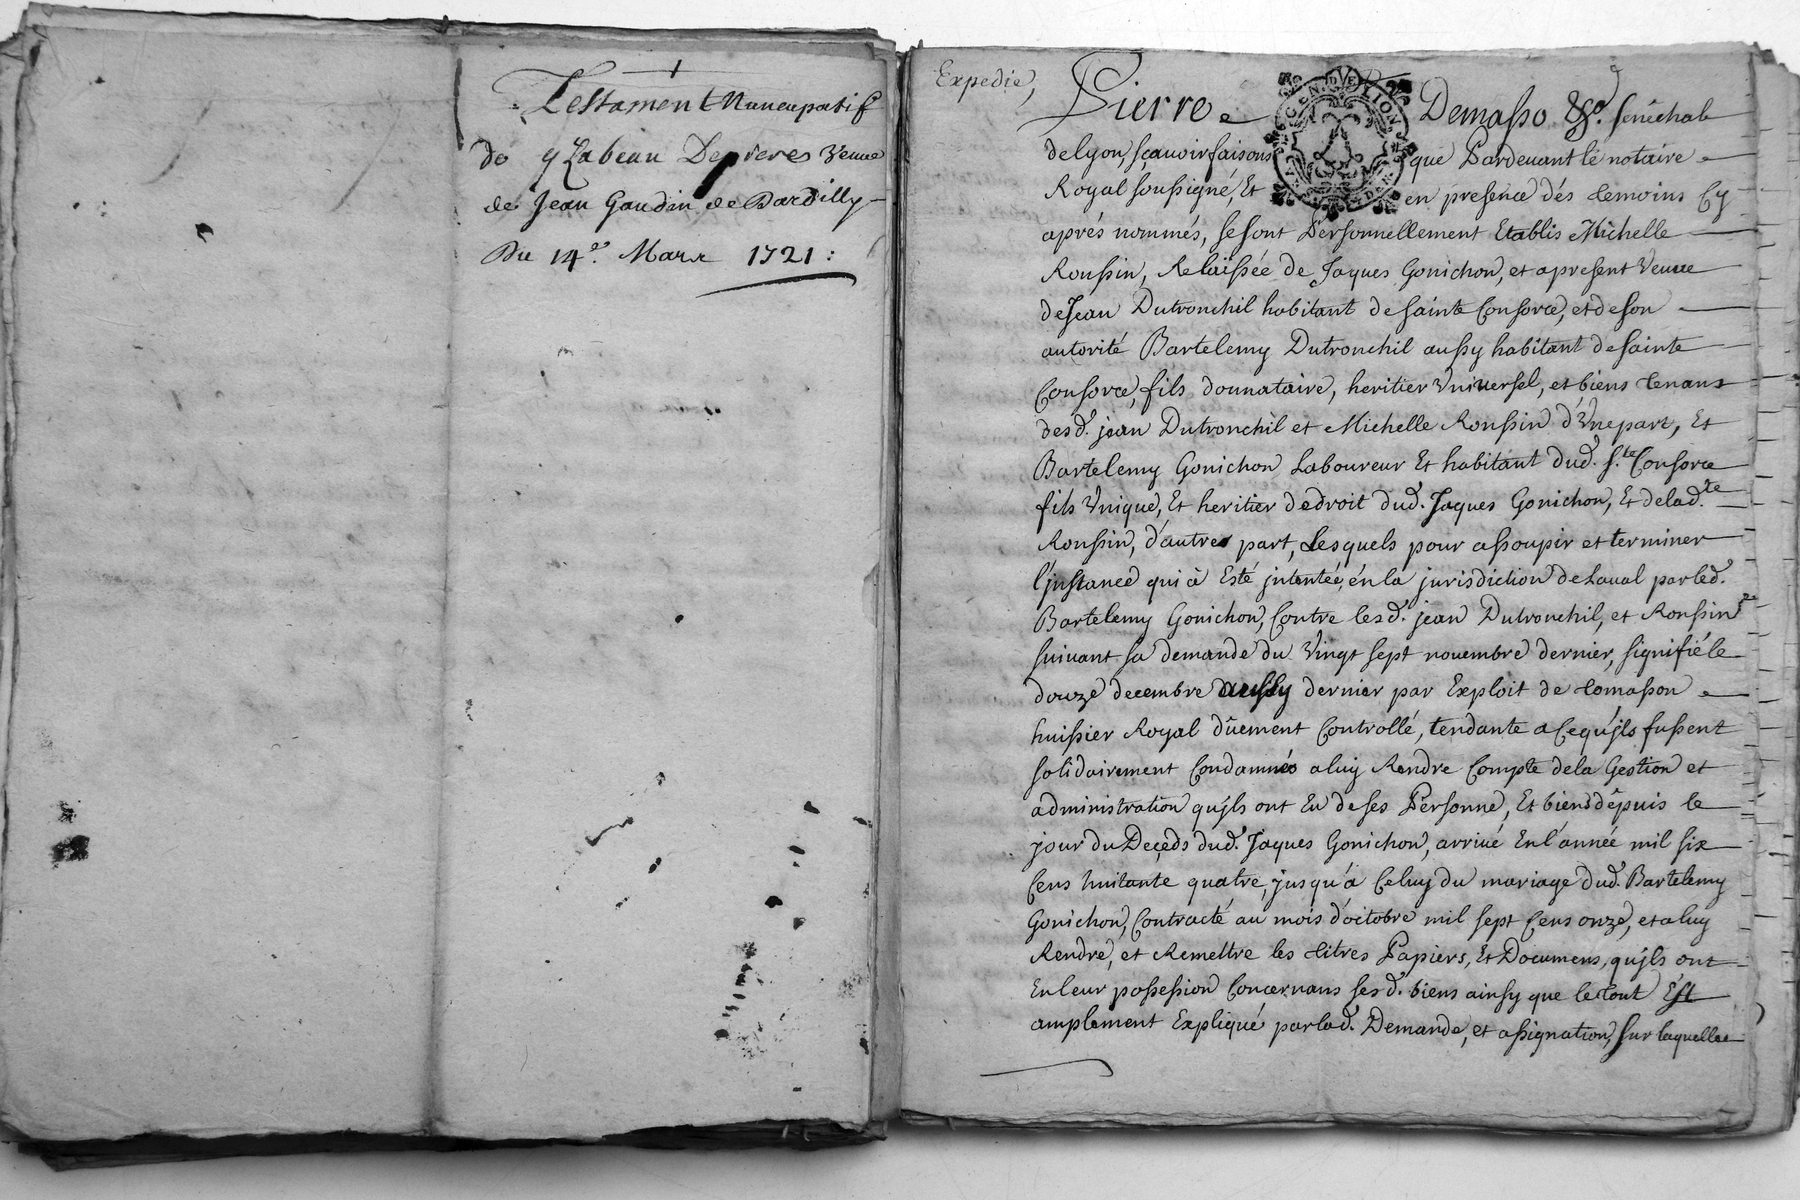 Testament Nuncupatif
de yzabeau Depreres veuve
de Jean Gaudin de Dardilly
Du 14.e Mars 1721:
Expedié,
Pierre Demasso &c.a senêchal
de Lyon, sçavoir faisons que Pardevant lé notaire
Royal soussigné, Et en presence dés temoins Cy
aprés nommés, se sont Personnellement Etablis Michelle
Roussin, Relaissée de Jaques Gonichon, et apresent veuve
de Jean Dutronchil habitant de sainte Consorce, et de son
autorité Bartelemy Dutronchil aussy habitant de sainte
Consorce, fils donnataire, heritier Vniversel, et biens tenans
desd. jean Dutronchil et Michelle Roussin d'Vnepart, Et
Bartelemy Gonichon Laboureur Et habitant dud. S.te Consorce
fils Vnique, Et heritier dedroit dud. Jaques Gonichon, Et delad.te
Roussin, d'autres part, Lesquels pour assoupir et terminer
l'jnstance qui à Esté jntentée, én la jurisdiction de Laval par led.
Bartelemy Gonichon, Contre lesd. jean Dutronchil, et Roussin
suivant sa demande du Vingt sept novembre dernier, signifié le
douze decembre aussy dernier par Exploit de tomasson
huissier Royal dûement Controllé, tendante a Cequ'jls fussent
solidairement Condamnés a luy Rendre Compte dela Gestion et
administration qu'jls ont Eu de ses Personne, Et biens dépuis le
jour du Deçeds dud. Jaques Gonichon, arrivé En l'année mil six
Cens huitante quatre, jusqu'a Celuy du mariage dud. Bartelemy
Gonichon, Contracté au mois d'octobre mil sept Cens onze, et a luy
Rendre, et Remettre les titres Papiers, Et Documens, qu'jls ont
En leur possession Concernans sesd. biens ainsy que le tout Est
amplement Expliqué par lad. Demande, et assignation, sur laquelle